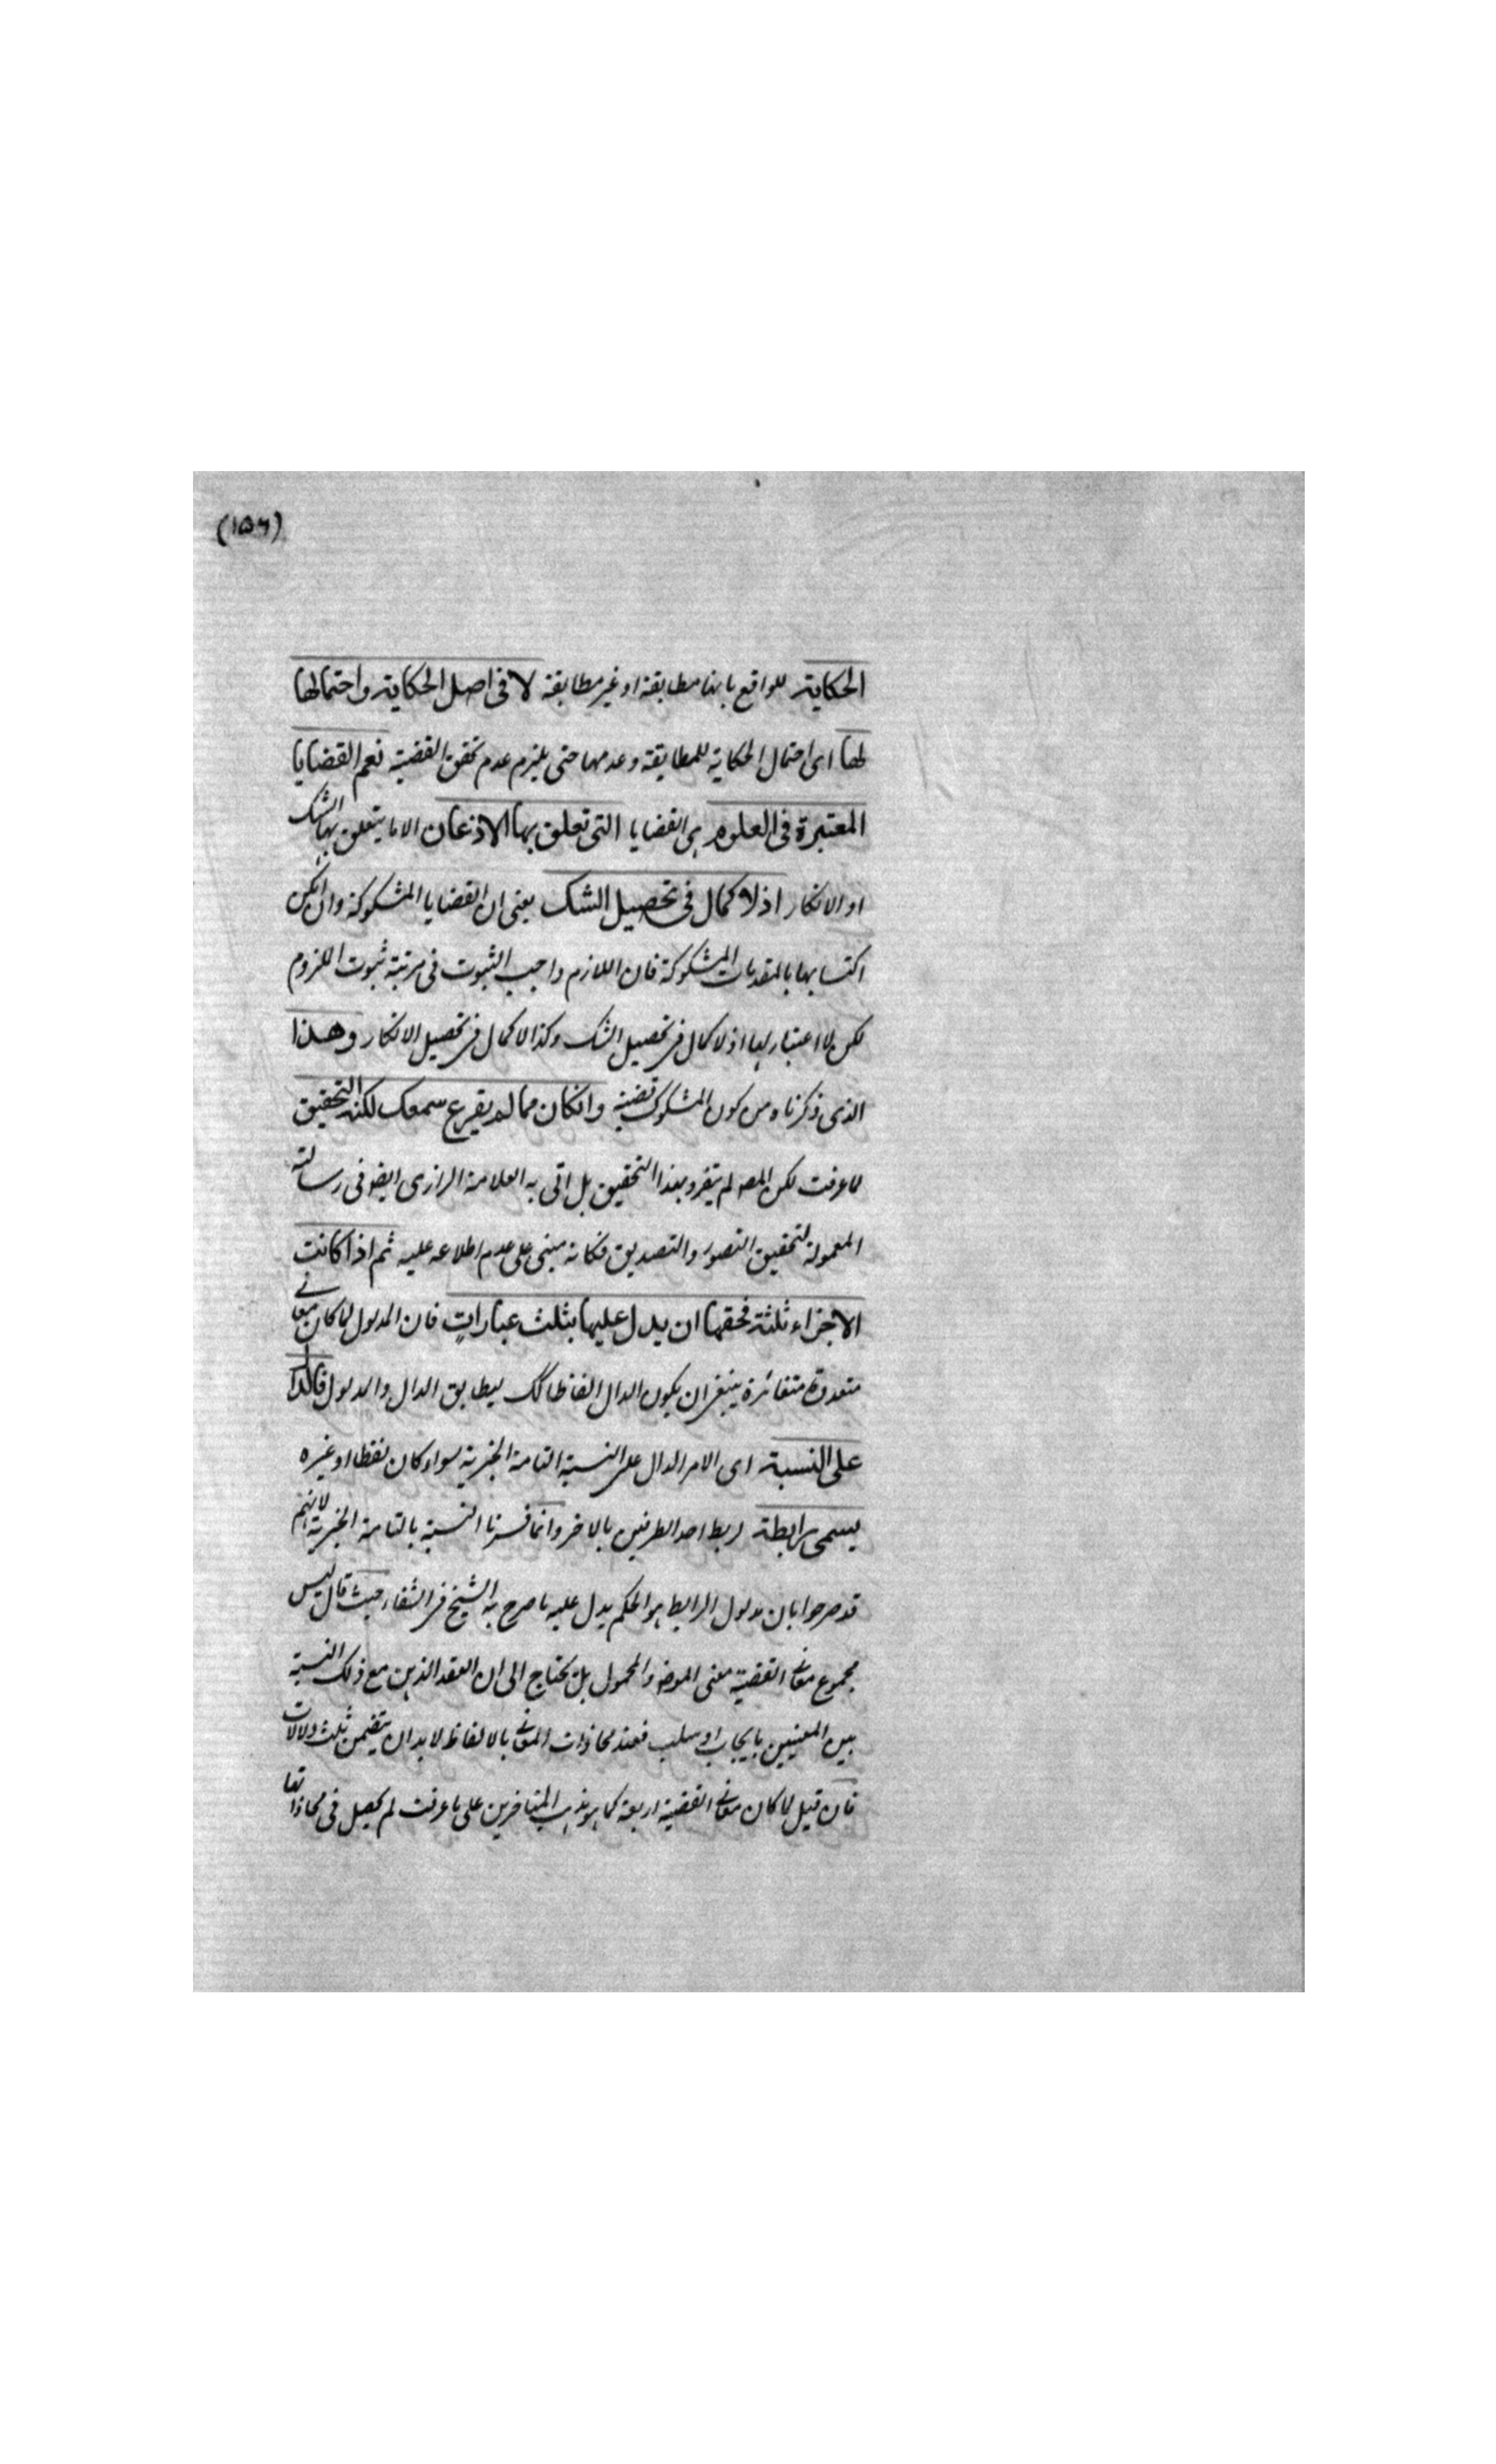 (١٥٦)
الحكاية للواقع بانها مطابقة او غير مطابقة لا فى اصل الحكاية واحتمالها
لها اى احتمال الحكاية للمطابقة وعدمها حتى يلزم عدم تحقق القضية نعم القضايا
المعتبرة فى العلوم هى القضايا التى تعلق بها الاذعان الا ما يتعلق بها الشك
او الانكار اذ لا كمال فى تحصيل الشك يعنى ان القضايا المشكوكة وان يمكن
اكتسابها بالمقدمات المشكوكة فان اللازم واجب الثبوت فى مرتبة ثبوت الملزوم
لكن لا اعتبار لها اذ لا كمال فى تحصيل الشك وكذا لا كمال فى تحصيل الانكار وهذا
الذى ذكرناه من كون المشكوك قضية وانكان مما لم يقرع سمعك لكنه التحقيق
لما عرفت لكن المصه لم يتفرد بهذا التحقيق بل اتى به العلامة الرازى ايضو فى رسالته
المعمولة لتحقيق التصور والتصديق فكانه مبنى على عدم اطلاعه عليه ثم اذا كانت
الاجزاء ثلثة فحقها ان يدل عليها بثلث عبارات فان المدلول لما كان معانى
متعددة متغائرة ينبغى ان يكون الدال الفاظا كك ليطابق الدال والمدلول فالدال
على النسبة اى الامر الدال على النسبة التامة الخبرية سواء كان لفظا او غيره
يسمى رابطة لربط احد الطرفين بالاخر وانما فسرنا النسبة بالتامة الخبرية لانهم
قد صرحوا بان مدلول الرابط هو الحكم يدل عليه ما صرح به الشيخ فى الشفاء حيث قال ليس
مجموع معانى القضية معنى الموضو والمحمول بل تحتاج الى ان العقد الذهن مع ذلك النسبة
بين المعنيين بايجاب او سلب فعند محاذات المعانى بالالفاظ لا بد ان يتضمن ثلث دلالات
فان قيل لما كان معانى القضية اربعة كما هو مذهب المتاخرين على ما عرفت لم يحصل فى محاذاتها